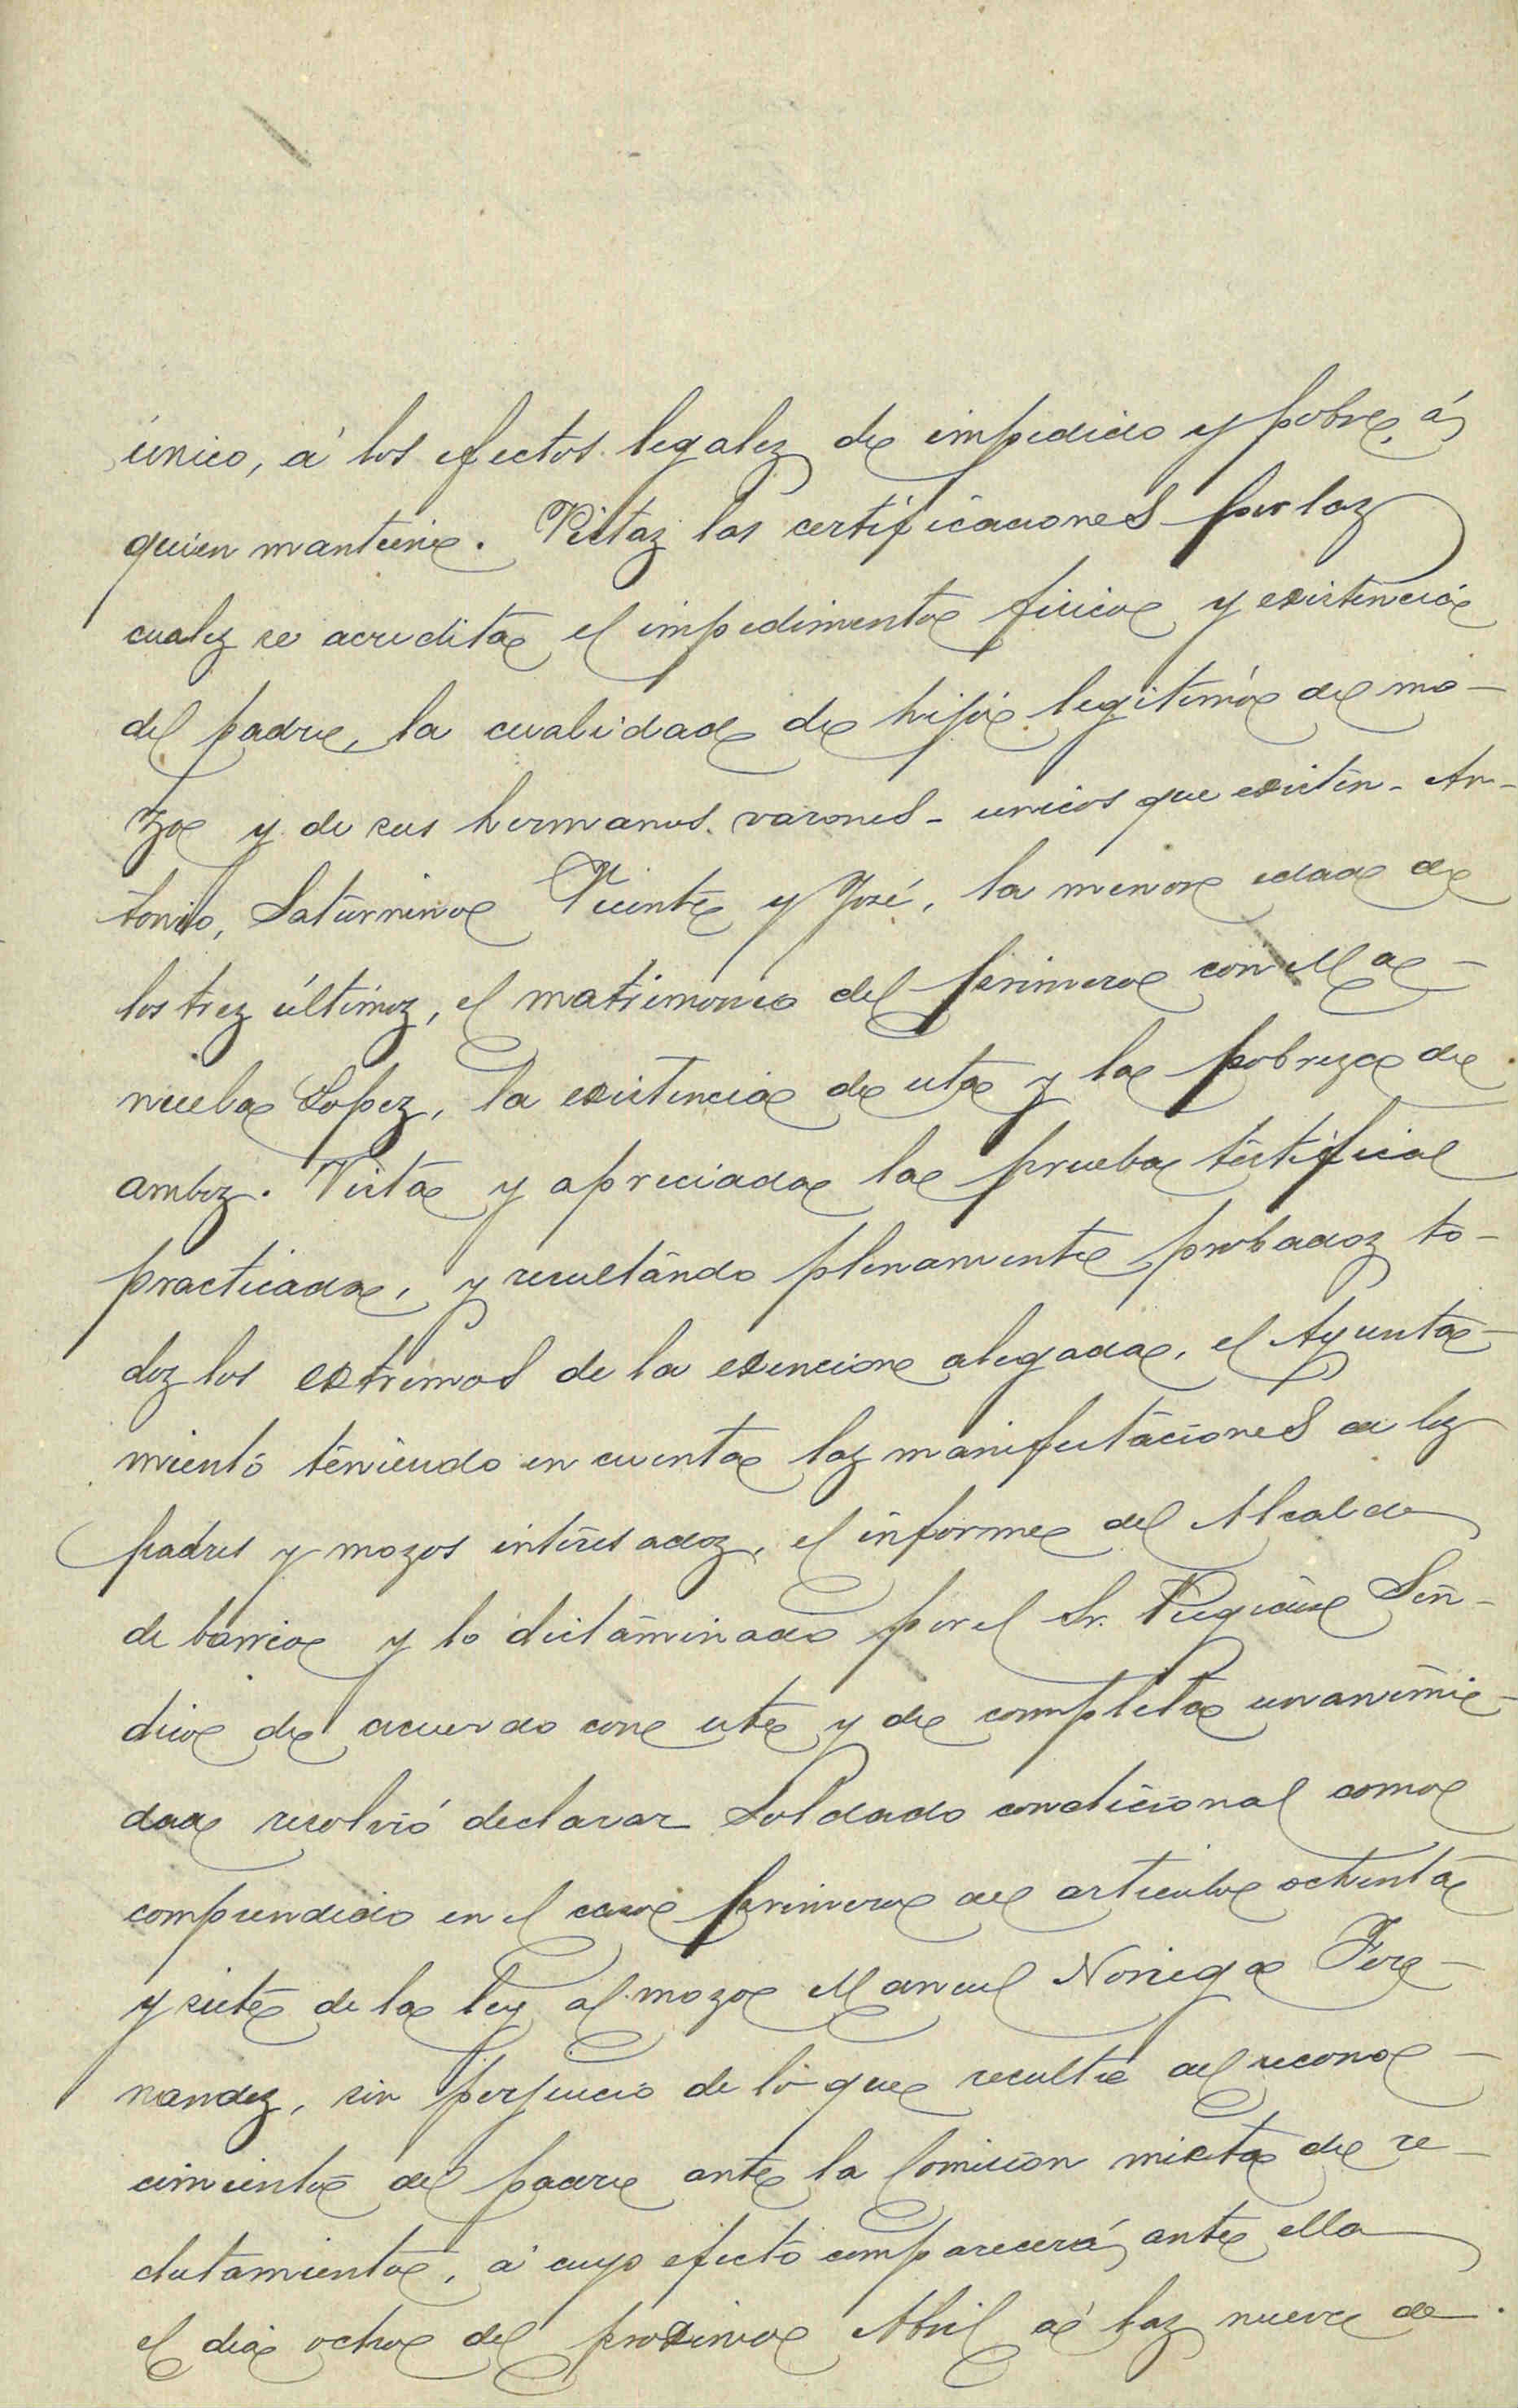 único, á los efectos legales de impedido y pobre, á
quien mantiene. Vistas las certificaciones por las
cuales se acredita el impedimento físico y existencia
del padre, la cualidad de hijo legitimo del mo-
zo y de sus hermanos varones - unicos que existen - An-
tonio, Saturnino Vicente y José, la menor edad de
los tres últimos, el matrimonio del primero con Ma-
nuela Lopez, la existencia de esta y la pobreza de
ambos. Vista y apreciada la prueba testifical
practicada, y resultando plenamente probados to-
dos los extremos de la exencion alegada, el Ayunta-
miento teniendo en cuenta las manifestaciones de los
padres y mozos interesados, el informe del Alcalde
de barrio y lo dictaminado por el Sr. Regidor Sin-
dico de acuerdo con este y de completa unanimi-
dad resolvió declarar Soldado condicional como
comprendido en el caso primero del articulo ochenta
y siete de la ley al mozo Manuel Noriega Fer-
nandez, sin perjuicio de lo que resulte del recono-
cimiento del padre ante la Comision mixta de re-
clutamiento, á cuyo efecto comparecerá ante ella
el dia ocho del proximo Abril á las nueve de